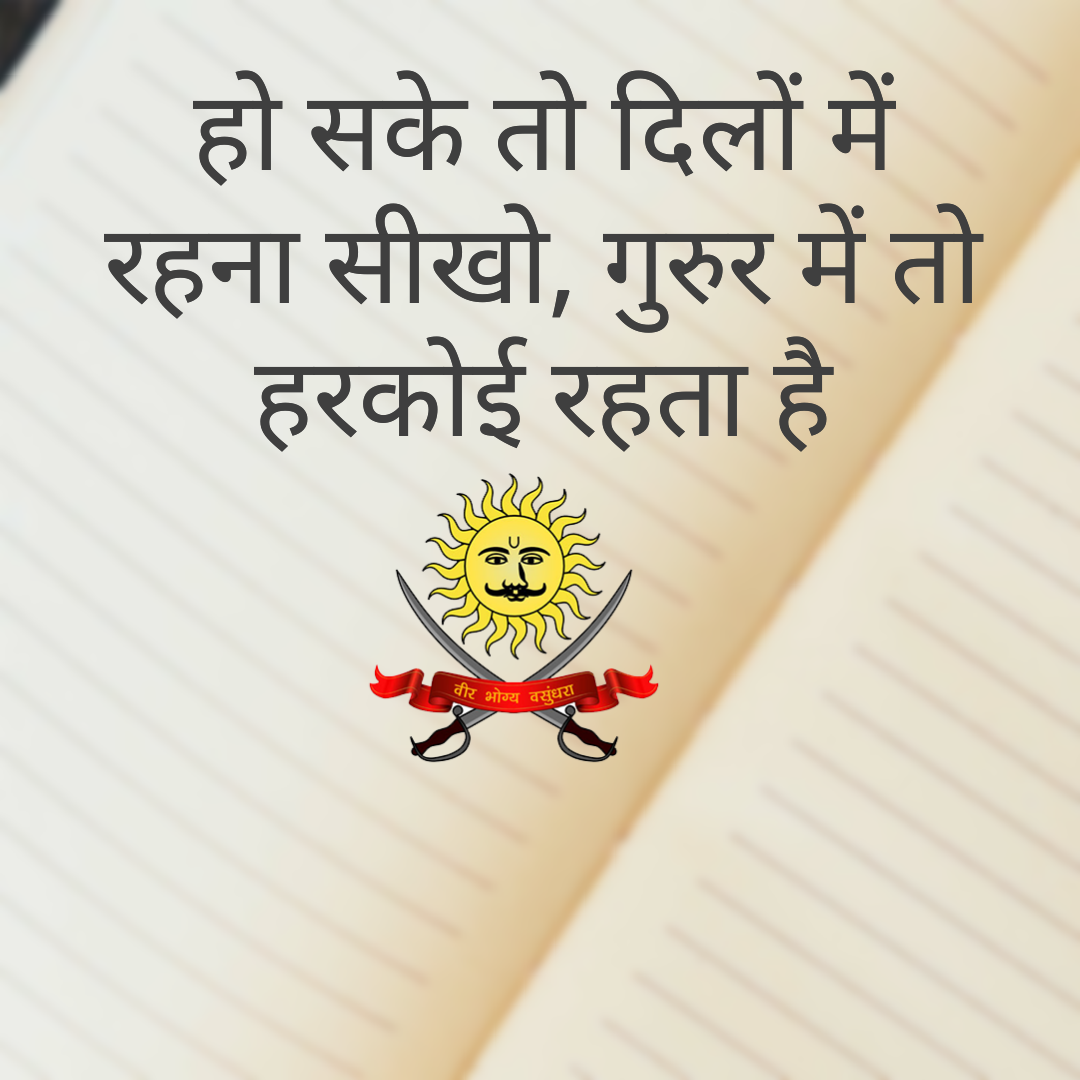 हो सके तो दिलों में
रहना सीखो, गुरुर में तो
हरकोई रहता है
वीर भोग्य वसुंधरा